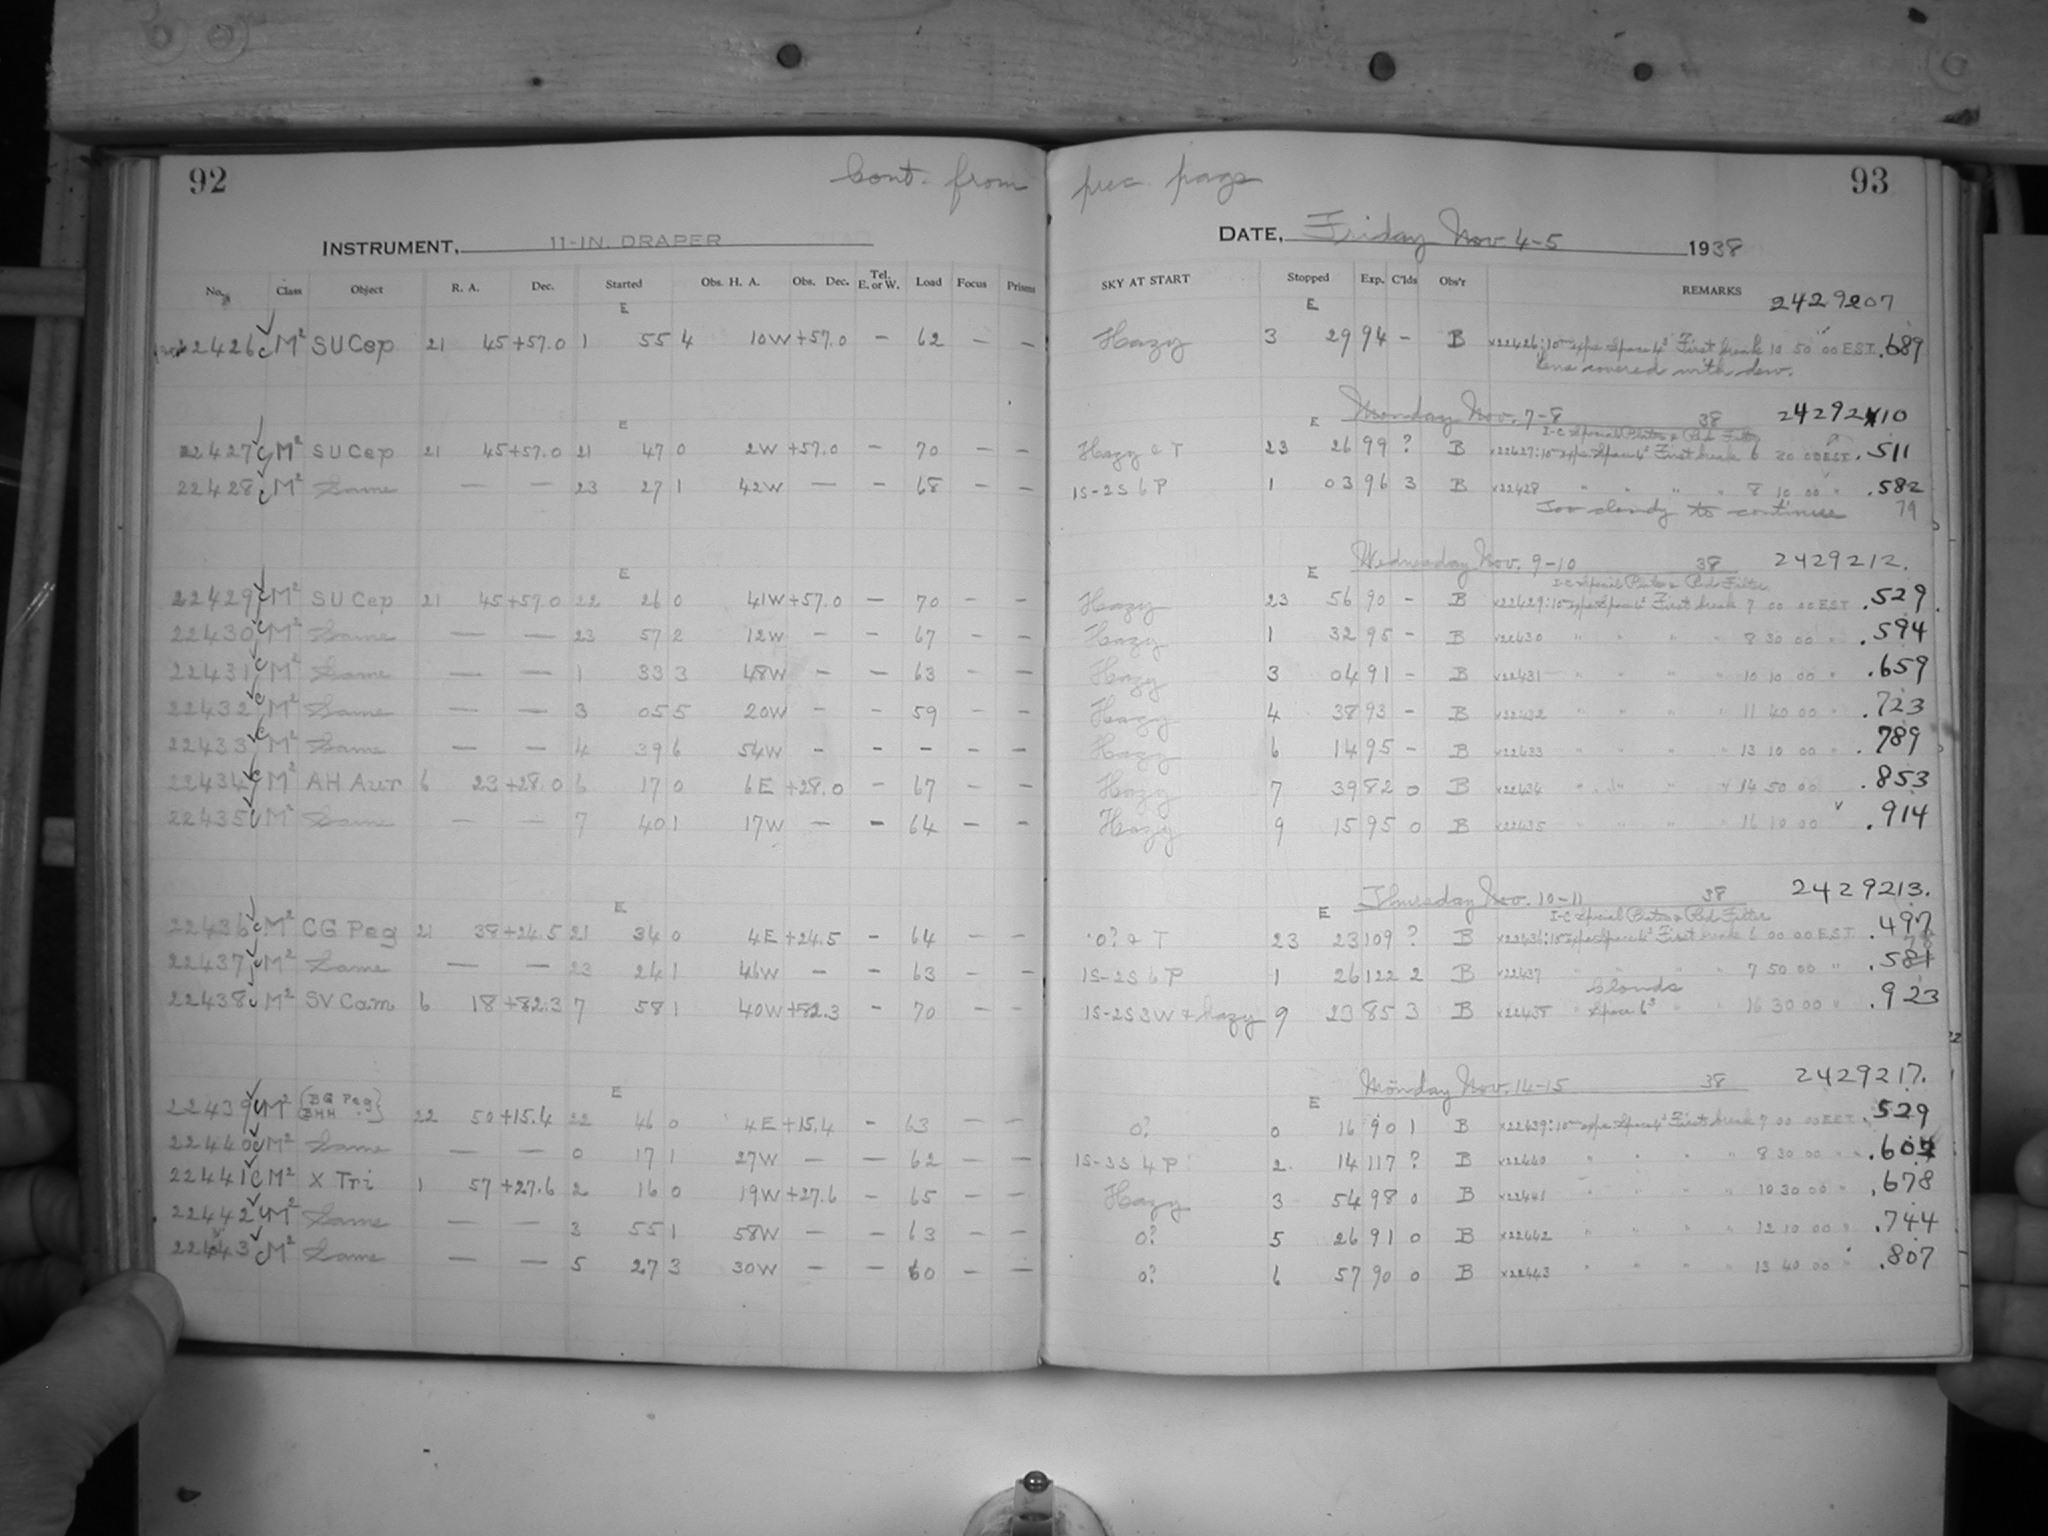 92 Cont. from prec. page 93
INSTRUMENT, 11-IN. DRAPER DATE, Friday Nov 4-5 1938
No. Class Object R. A. Dec. Started Obs. H. A. Obs. Dec. Tel. E. or W. Load Focus Prisms SKY AT START Stopped Exp. C'lds Obs'r REMARKS
E E 2429207
22426 C M² SU Cep 21 45 +57.0 1 55 4 10W +57.0 – 62 – – Hazy 3 29 94 – B x22426: 10ᵐ exps. Space 4ˢ First break 10 50 00 EST .689
Lens covered with dew.
E E Monday Nov. 7-8 38 2429210
I-C Special Plates & Red Filter
22427 C M² SU Cep 21 45 +57.0 21 47 0 2W +57.0 – 70 – – Hazy & T 23 26 99 ? B x22427: 10ᵐ exps. Space 4ˢ First break 6 20 00 EST .511
22428 C M² Same — — 23 27 1 42W — – 68 – – 1S-2S 6P 1 03 96 3 B x22428 " " " " 8 10 00 " .582
Too cloudy to continue 79
E E Wednesday Nov. 9-10 38 2429212.
I-C Special Plates & Red Filter
22429 C M² SU Cep 21 45 +57.0 22 26 0 41W +57.0 – 70 – – Hazy 23 56 90 – B x22429: 10ᵐ exps Space 4ˢ First break 7 00 00 EST .529
22430 C M² Same — — 23 57 2 12W – – 67 – – Hazy 1 32 95 – B x22430 " " " " 8 30 00 " .594
22431 C M² Same — — 1 33 3 48W – – 63 – – Hazy 3 04 91 – B x22431 " " " 10 10 00 " .659
22432 C M² Same — — 3 05 5 20W – – 59 – – Hazy 4 38 93 – B x22432 " " " " 11 40 00 " .723
22433 C M² Same — — 4 39 6 54W – – – – – Hazy 6 14 95 – B x22433 " " " " 13 10 00 " .789
22434 C M² AH Aur 6 23 +28.0 6 17 0 6E +28.0 – 67 – – Hazy 7 39 82 0 B x22434 " " " " 14 50 00 .853
22435 C M² Same — — 7 40 1 17W — – 64 – – Hazy 9 15 95 0 B x22435 " " " " 16 10 00 " .914
E E Thursday Nov. 10-11 38 2429213.
I-C Special Plates & Red Filter
22436 C M² CG Peg 21 38 +24.5 21 34 0 4E +24.5 – 64 – – 0? & T 23 23 109 ? B x22436: 10ᵐ exps Space 4ˢ First break 6 00 00 EST .497
78
22437 C M² Same — — 23 24 1 46W – – 63 – – 1S-2S 6P 1 26 122 2 B x22437 " " " " 7 50 00 " .581
Clouds
22438 C M² SV Cam 6 18 +82.3 7 58 1 40W +82.3 – 70 – – 1S-2S 3W & hazy 9 23 85 3 B x22438 " Space 6ˢ " " 16 30 00 " .923
E E Monday Nov. 14-15 38 2429217.
22439 C M² {BG Peg BHH} 22 50 +15.4 22 46 0 4E +15.4 – 63 – – 0? 0 16 90 1 B x22439: 10ᵐ exps. Space 4ˢ First break 7 00 00 EST .529
22440 C M² Same — — 0 17 1 27W — – 62 – – 1S-3S 4P 2 14 117 ? B x22440 " " " " 8 30 00 " .604
22441 C M² X Tri 1 57 +27.6 2 16 0 19W +27.6 – 65 – – Hazy 3 54 98 0 B x22441 " " " " 10 30 00 " .678
22442 C M² Same — — 3 55 1 58W – – 63 – – 0? 5 26 91 0 B x22442 " " " " 12 10 00 " .744
22443 C M² Same — — 5 27 3 30W – – 60 – – 0? 6 57 90 0 B x22443 " " " " 13 40 00 " .807